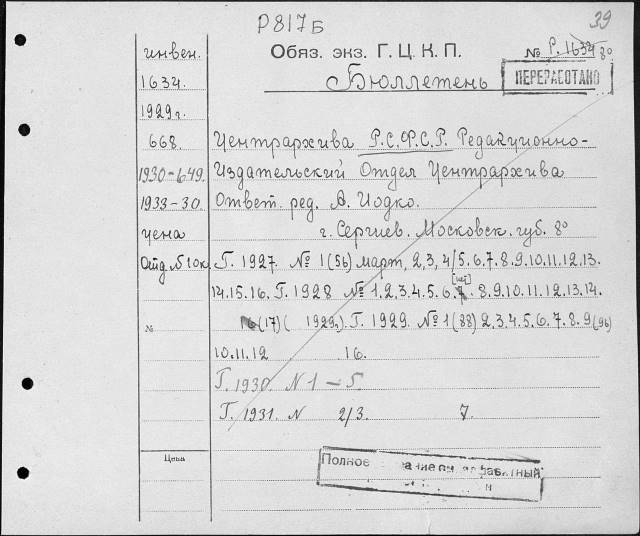 Р817Б
39
инвен.
Обяз. экз. Г. Ц. К. П.
№ Р. 1634 8°
1634.
Бюллетень
ПЕРЕРАБОТАНО
1929 г.
668.
Центрархива Р.С.Ф.С.Р. Редакционно-
1930-649.
Издательский Отдел Центрархива
1933-30.
Ответ. ред. А. Иодко.
цена
г. Сергиев. Московск. губ. 8°
Отд. № 10к.
Г. 1927. № 1(56) март, 2, 3, 4/5. 6. 7. 8. 9. 10. 11. 12. 13.
14. 15. 16. Г. 1928 № 1. 2. 3. 4. 5. 6. 7. 8. 9. 10. 11. 12. 13. 14.
№
16(17)( 1929г). Г. 1929. № 1(88) 2. 3. 4. 5. 6. 7. 8. 9(96)
10. 11. 12 16.
Г. 1930. N 1 – 5.
Г. 1931. N 2/3. 7.
Цена
Полное